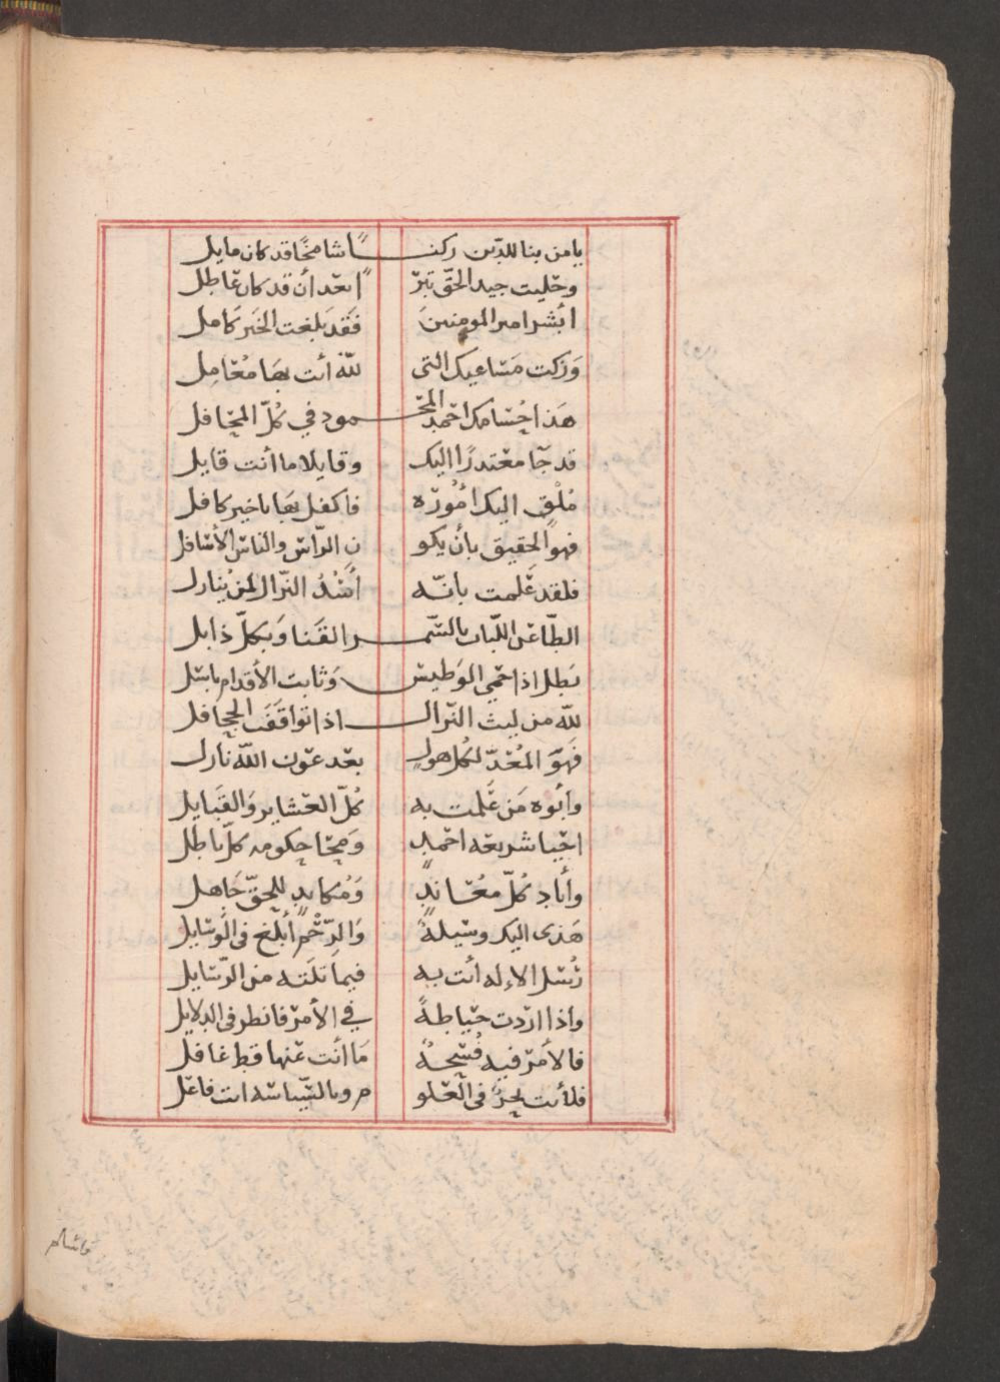 يا من بنا للدين ركنـــــاً شامخًا قد كان مايل
وحليت جيد الحق تبر اً بعد أن قد كان عاطل
ابشر امير المومنين فقد بلغت الخبر كامل
وزكت مساعيك التي لله أنت بها معامل
هذا حسامك احمد المحـــمود في كل المحافل
قد جا معتدرًا اليك وقايلا ما أنت قايل
ملق اليك اموره فاكفل بها يا خير كافل
فهو الحقيق بأن يكو ن الراس والناس الأسافل
فلقد علمت بانه أسد النزال لمن ينازل
الطاعن اللبات بالسمـــر القنا وبكل ذابل
بطل اذا حمي الوطيس وثابت الأقدام باسل
لله من ليث النزال اذا تواقفت الجحافل
فهو المعد لكل هول بعد عون الله نازل
وأبوه من علمت به كل العشاير والقبايل
احيا شريعة احمد ومحا حكومه كل باطل
وأباد كل معاند ومكابد للحق جاهل
هذى اليك وسيلة والرحم أبلغ في الوسايل
رسل الاءله أتت به فيما تلته من الرسايل
واذا اردت حياطة في الأمر فانظر في الدلايل
فالامر فيه فسحة ما أنت عنها قط غافل
فلأنت بحر في العلو م وبالسياسه انت فاعل